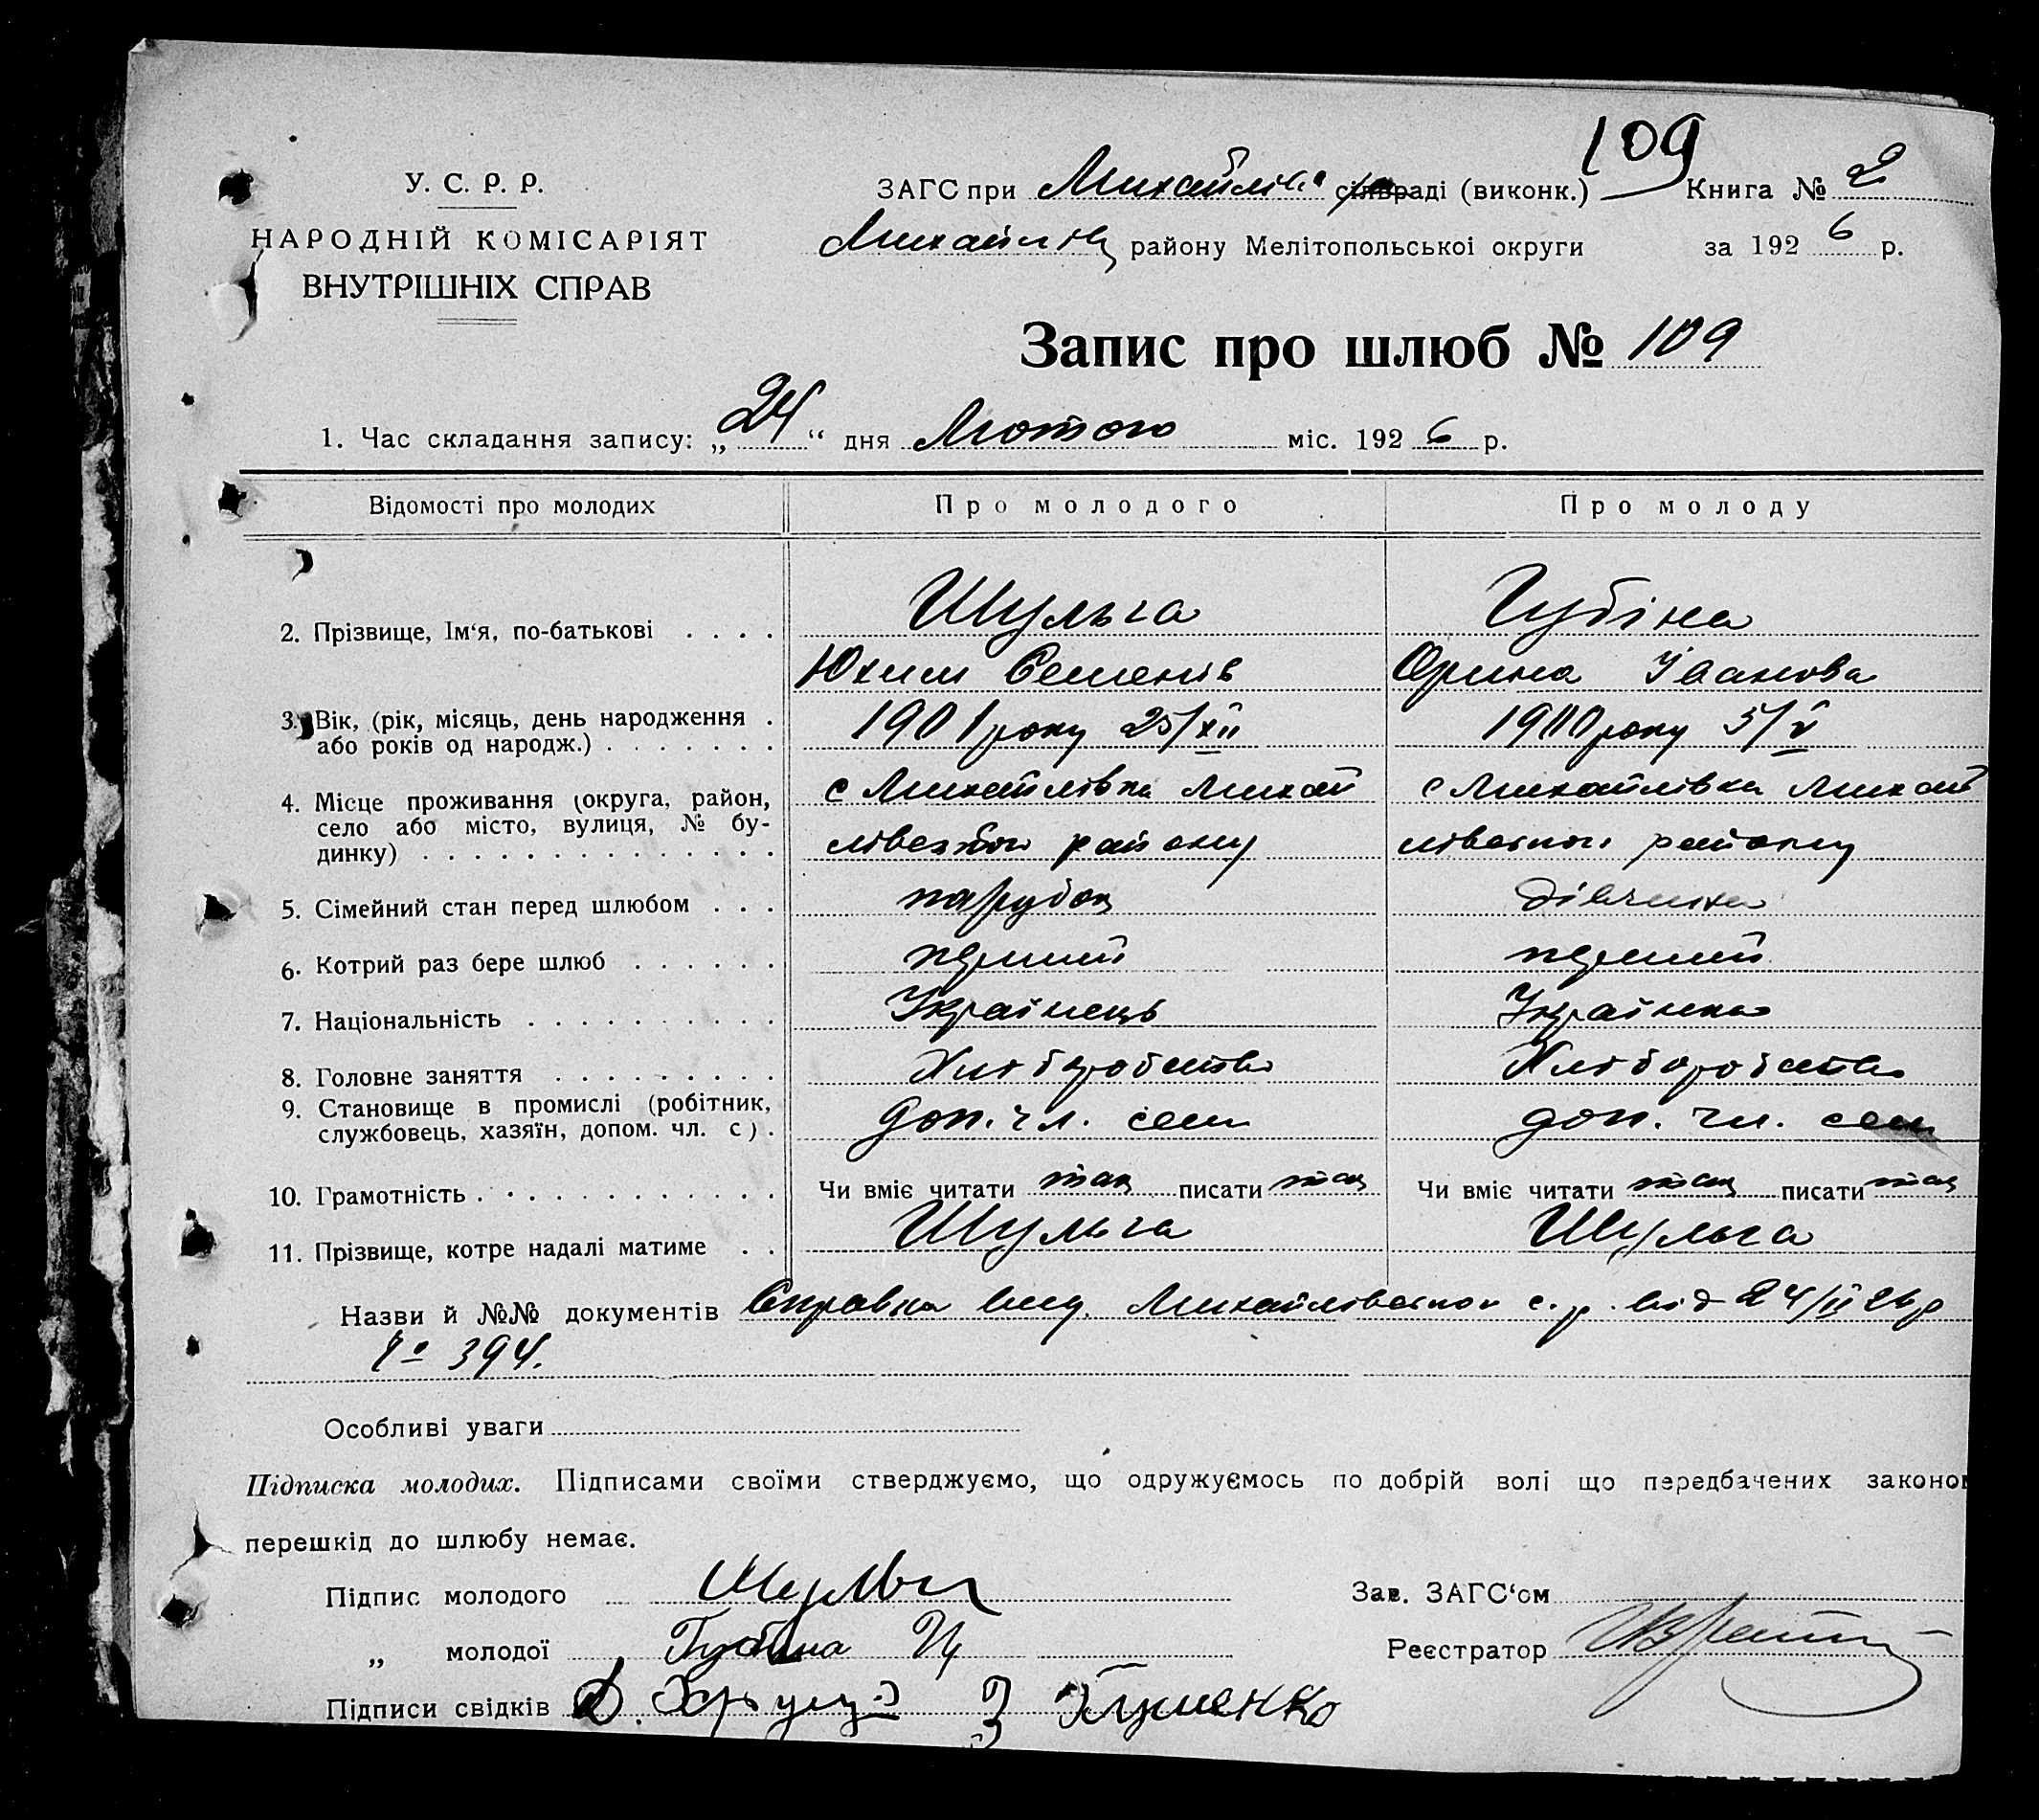 109
У. С. Р. Р.
ЗАГС при Михайлівс сільраді (виконк.) Книга № 2
НАРОДНІЙ КОМІСАРІЯТ
району Мелітопольської округи за 1926 р.
ВНУТРІШНІХ СПРАВ
Запис про шлюб № 109
1. Час складання запису: „24“ дня Лютого міс. 1926 р.
Відомості про молодих Про молодого Про молоду
Шульга Губіна
2. Прізвище, Ім‘я, по-батькові . . . .
Юхим Семенів Орина Іванова
3. Вік, (рік, місяць, день народження . 1901 року 25/XII 1900 року 5/V
або років од народж.) . . . . . . .
4. Місце проживання (округа, район, с Михайлівка Михай с Михайлівка Михай
село або місто, вулиця, № бу-
динку) . . . . . . . . . . . . . . . лівського району лівського району
5. Сімейний стан перед шлюбом . . . парубок дівчина
6. Котрий раз бере шлюб . . . . . . перший перший
7. Національність . . . . . . . . . . Українець Українка
8. Головне заняття . . . . . . . . . Хліборобство Хліборобство
9. Становище в промислі (робітник,
службовець, хазяїн, допом. чл. с) . доп. чл. сем доп. чл. сем
10. Грамотність . . . . . . . . . . . . Чи вміє читати так писати так Чи вміє читати так писати так
11. Прізвище, котре надалі матиме . . Шульга Шульга
Назви й №№ документів Справка Михайлівської с. р. від 24/II 26 р
№ 394.
Особливі уваги
Підписка молодих. Підписами своїми стверджуємо, що одружуємось по добрій волі що передбачених законом
перешкід до шлюбу немає.
Підпис молодого Шульга Зав. ЗАГС‘ом
„ молодої Губина Реєстратор
Підписи свідків